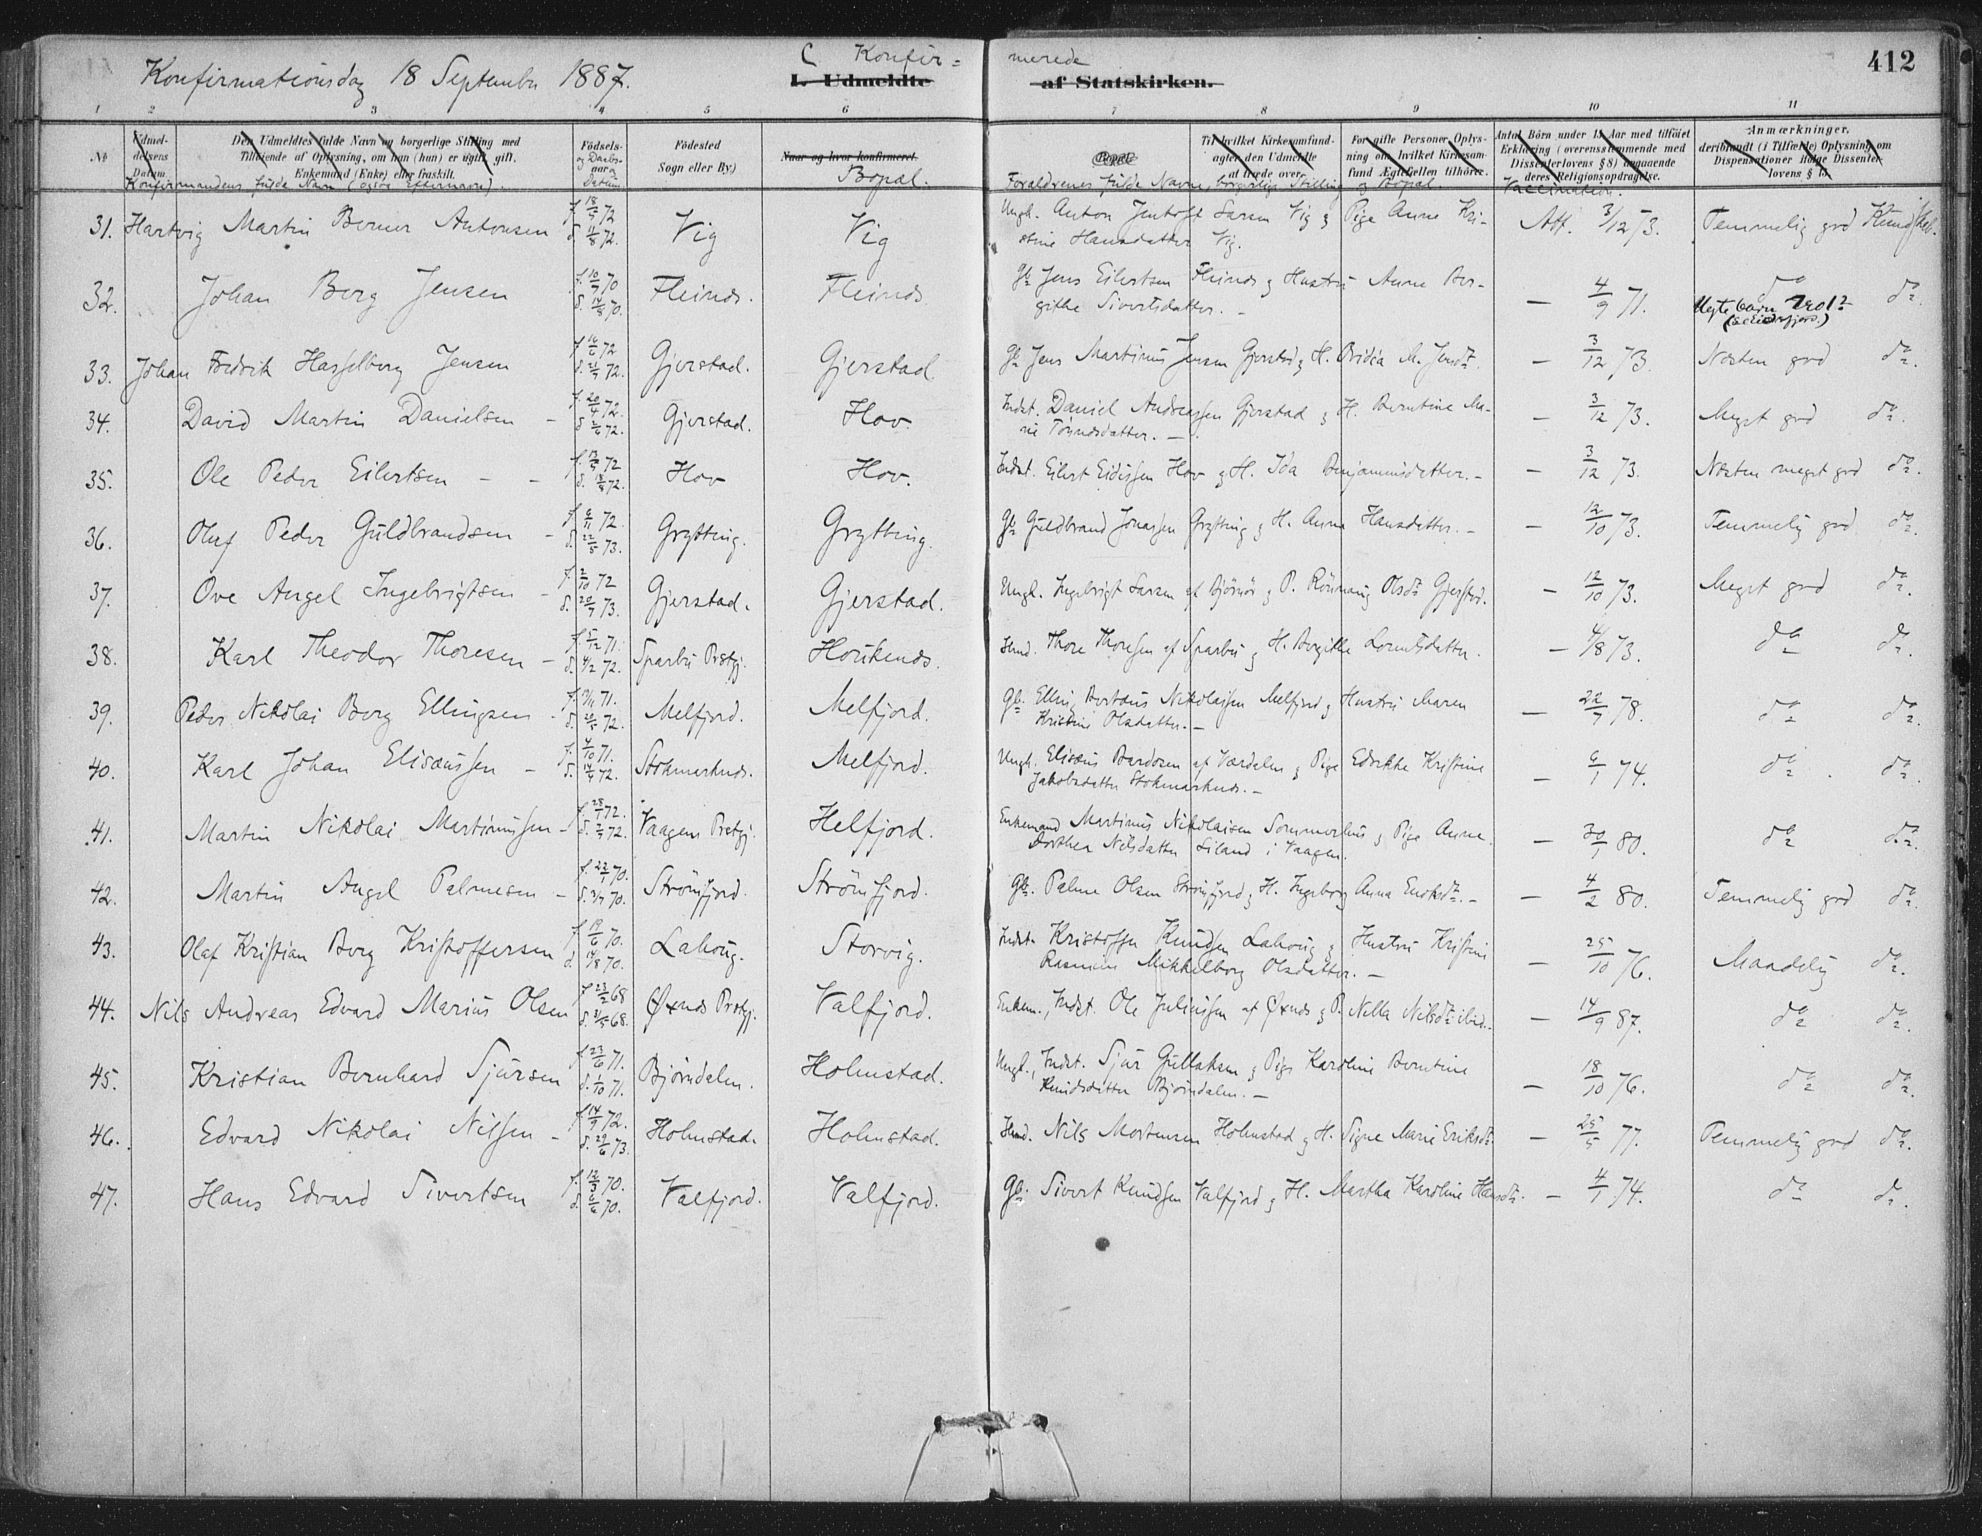 Konfirmationsdag 18 September 1887.
C Konfir= merede
L. Udmeldte af Statskirken.
412
1 2 3 4 5 6 7 8 9 10 11
No
Udmeldelsens Datum.
Den Udmeldtes fulde Navn og borgerlige Stilling med Tilføiende af Oplysning, om han (hun) er ugift, gift, Enkemand (Enke) eller fraskilt.
Konfirmandens fulde Navn (også Efternavn).
Fødsels- og Daabs- aar og datum
Fødested Sogn eller By.)
Naar og hvor konfirmeret.
Bopæl.
Bopæl.
Forældrenes fulde Navne, borgerlige Stilling og Bopæl
Til hvilket Kirkesamfund agter den Udmeldte at træde over.
For gifte Personer Oplysning om hvilket Kirkesamfund Ægtefællen tilhører.
Antal Børn under 15 Aar med tilføiet Erklæring (overensstemmende med Dissenterlovens § 8) angaaende deres Religionsopdragelse.
Vaccination.
Anmærkninger, deriblandt (i Tilfælde) Oplysning om Dispensationer ifølge Dissenterlovens § 15.
31. Hartvig Martin Berner Antonsen f. 18/5 72 d. 11/8 72. Vig Vig Ungk. Anton Jentoft Larsen Vig & Pige Anne Kri-
stine Hansdatter Vig. Att. 3/12 73. Temmelig god Kundskab.
32. Johan Berg Jensen f. 10/7 70 d. 14/8 70. Fleines. Fleines Gb. Jens Eilertsen Fleines & Hustru Anne Ber-
githe Sivertsdatter. — — 4/9 71. do do.
33. Johan Fredrik Hasselberg Jensen f. 16/6 72 d. 21/7 72. Gjerstad. Gjerstad Gb. Jens Martinus Jensen Gjerstad & H. M. Jensdr. — 3/12 73. Næsten god do.
34. David Martin Danielsen — f. 20/4 72. d. 2/6 72. Gjerstad. Hov. Indst. Daniel Andreassen Gjerstad & H. Berntine Ma-
rie Tønnesdatter. — — 3/12 73. Meget god do.
35. Ole Peder Eilertsen — — f. 13/5 72 d. 18/8 72. Hov Hov. Indst. Eilert Eidissen Hov & H. Ida Benjaminsdatter. — — 3/12 73. Næsten meget god do.
36. Oluf Peder Guldbrandsen — f. 6/11 72. d. 22/5 73. Grytting. Grytting. Gb. Guldbrand Jonassen Grytting & H. Anne Hansdatter. — — 12/10 73. Temmelig god do.
37. Ove Angel Ingebrigtsen — f. 2/10 72 d. 20/7 73. Gjerstad. Gjerstad. Ungk. Ingebrigt Larsen af Bjørnør & P. Rønnaug Olsdr. Gjerstad. — 12/10 73. Meget god do.
38. Karl Theodor Thoresen — f. 5/12 71. d. 4/2 72. Sparbu Prstgj. Houkenes. Hmd. Thore Thoresen af Sparbu & H. Bergithe Lorentsdatter. — 4/8 73. do do.
39. Peder Nikolai Berg Ellingsen — f. 13/11 71. d. 20/5 72. Melfjord. Melfjord. Gb. Elling Bertæus Nikolaissen Melfjord & Hustru Maren
Kristine Olsdatter. — — 22/7 78. do do.
40. Karl Johan Elisæussen — f. 4/10 71. d. 14/4 72. Stokmarknes. Melfjord. Ungk. Elisæus Bardosen af Værdalen & Pige Edrikke Kristine
Jakobsdatter Stokmarknes. — — 6/1 74. do do.
41. Martin Nikolai Martinussen — f. 28/1 72. d. 2/4 72. Vaagens Prstgj. Helfjord. Enkemand Martinus Nikolaisen Sommerhus & Pige Anne
Dorthea Nilsdatter Liland i Vaagen. — 30/1 80. do do.
42. Martin Angel Palmesen — f. 22/1 70. d. 3/7 70. Strømfjord. Strømfjord. Gb. Palme Olsen Strømfjord & H. Ingeborg Anna Enoksdr. — — 4/2 80. Temmelig god do.
43. Olaf Kristian Berg Kristoffersen f. 19/6 70. d. 14/8 70. Lahaug. Storvig. Indst. Kristoffer Knudsen Lahaug & Hustru Kristine
Rasmine Mikkelborg Olsdatter. — — 25/10 76. Maadelig do.
44. Nils Andreas Edvard Marius Olsen f. 23/2 68 d. 3/5 68. Øxnes Prstgj. Valfjord. Enkem., Indst. Ole Juliussen af Øxnes & P. Nella Nilsdr. ibid. — 14/9 87. do do.
45. Kristian Bernhard Sjursen f. 23/6 71. d. 1/10 71. Bjørndalen. Holmstad. Ungk., Indst. Sjur Gullaksen & Pige Karoline Berntine
Knudsdatter Bjørndalen. — — 18/10 76. do do.
46. Edvard Nikolai Nilsen — f. 14/9 72. d. 29/6 73. Holmstad. Holmstad. Hmd. Nils Mortensen Holmstad & H. Signe Marie Eriksdr. — 25/5 77. Temmelig god do.
47. Hans Edvard Sivertsen f. 12/3 70. d. 6/6 70. Valfjord. Valfjord. Gb. Sivert Knudsen Valfjord & H. Martha Karoline Hansdr. — 4/1 74. do do.